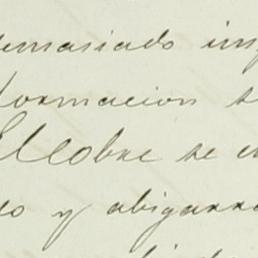 demasiado imp
formacion s
El Cobre se e
do y abigarra